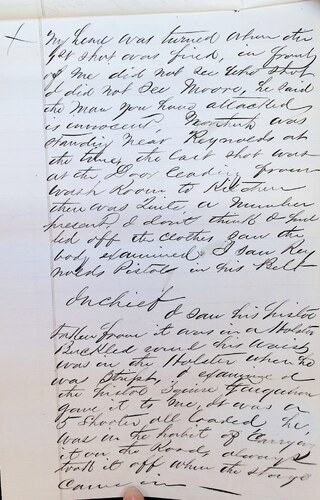 X My head was turned when the
1st shot was fired, in front
of me did not see who shot
I did not see Moore, he said
the man you have attacked
is innocent, was
standing near Reynolds at
the time, the last shot was
at the Door leading from
wash Room to Kitchen
there was quite a number
present, I don't think I
off the clothes saw the
body examined, I saw Rey
nolds Pistols in his Belt
In chief
I saw his Pistol
taken from it was in a Holster
Buckled round his waist
was in the Holster when he
was stript, I examined
the Pistol Ferguson
gave it to me, it was a
5 shooter all loaded, he
was in the habit of carrying
it on the Road, always
took it off when the stage
came in